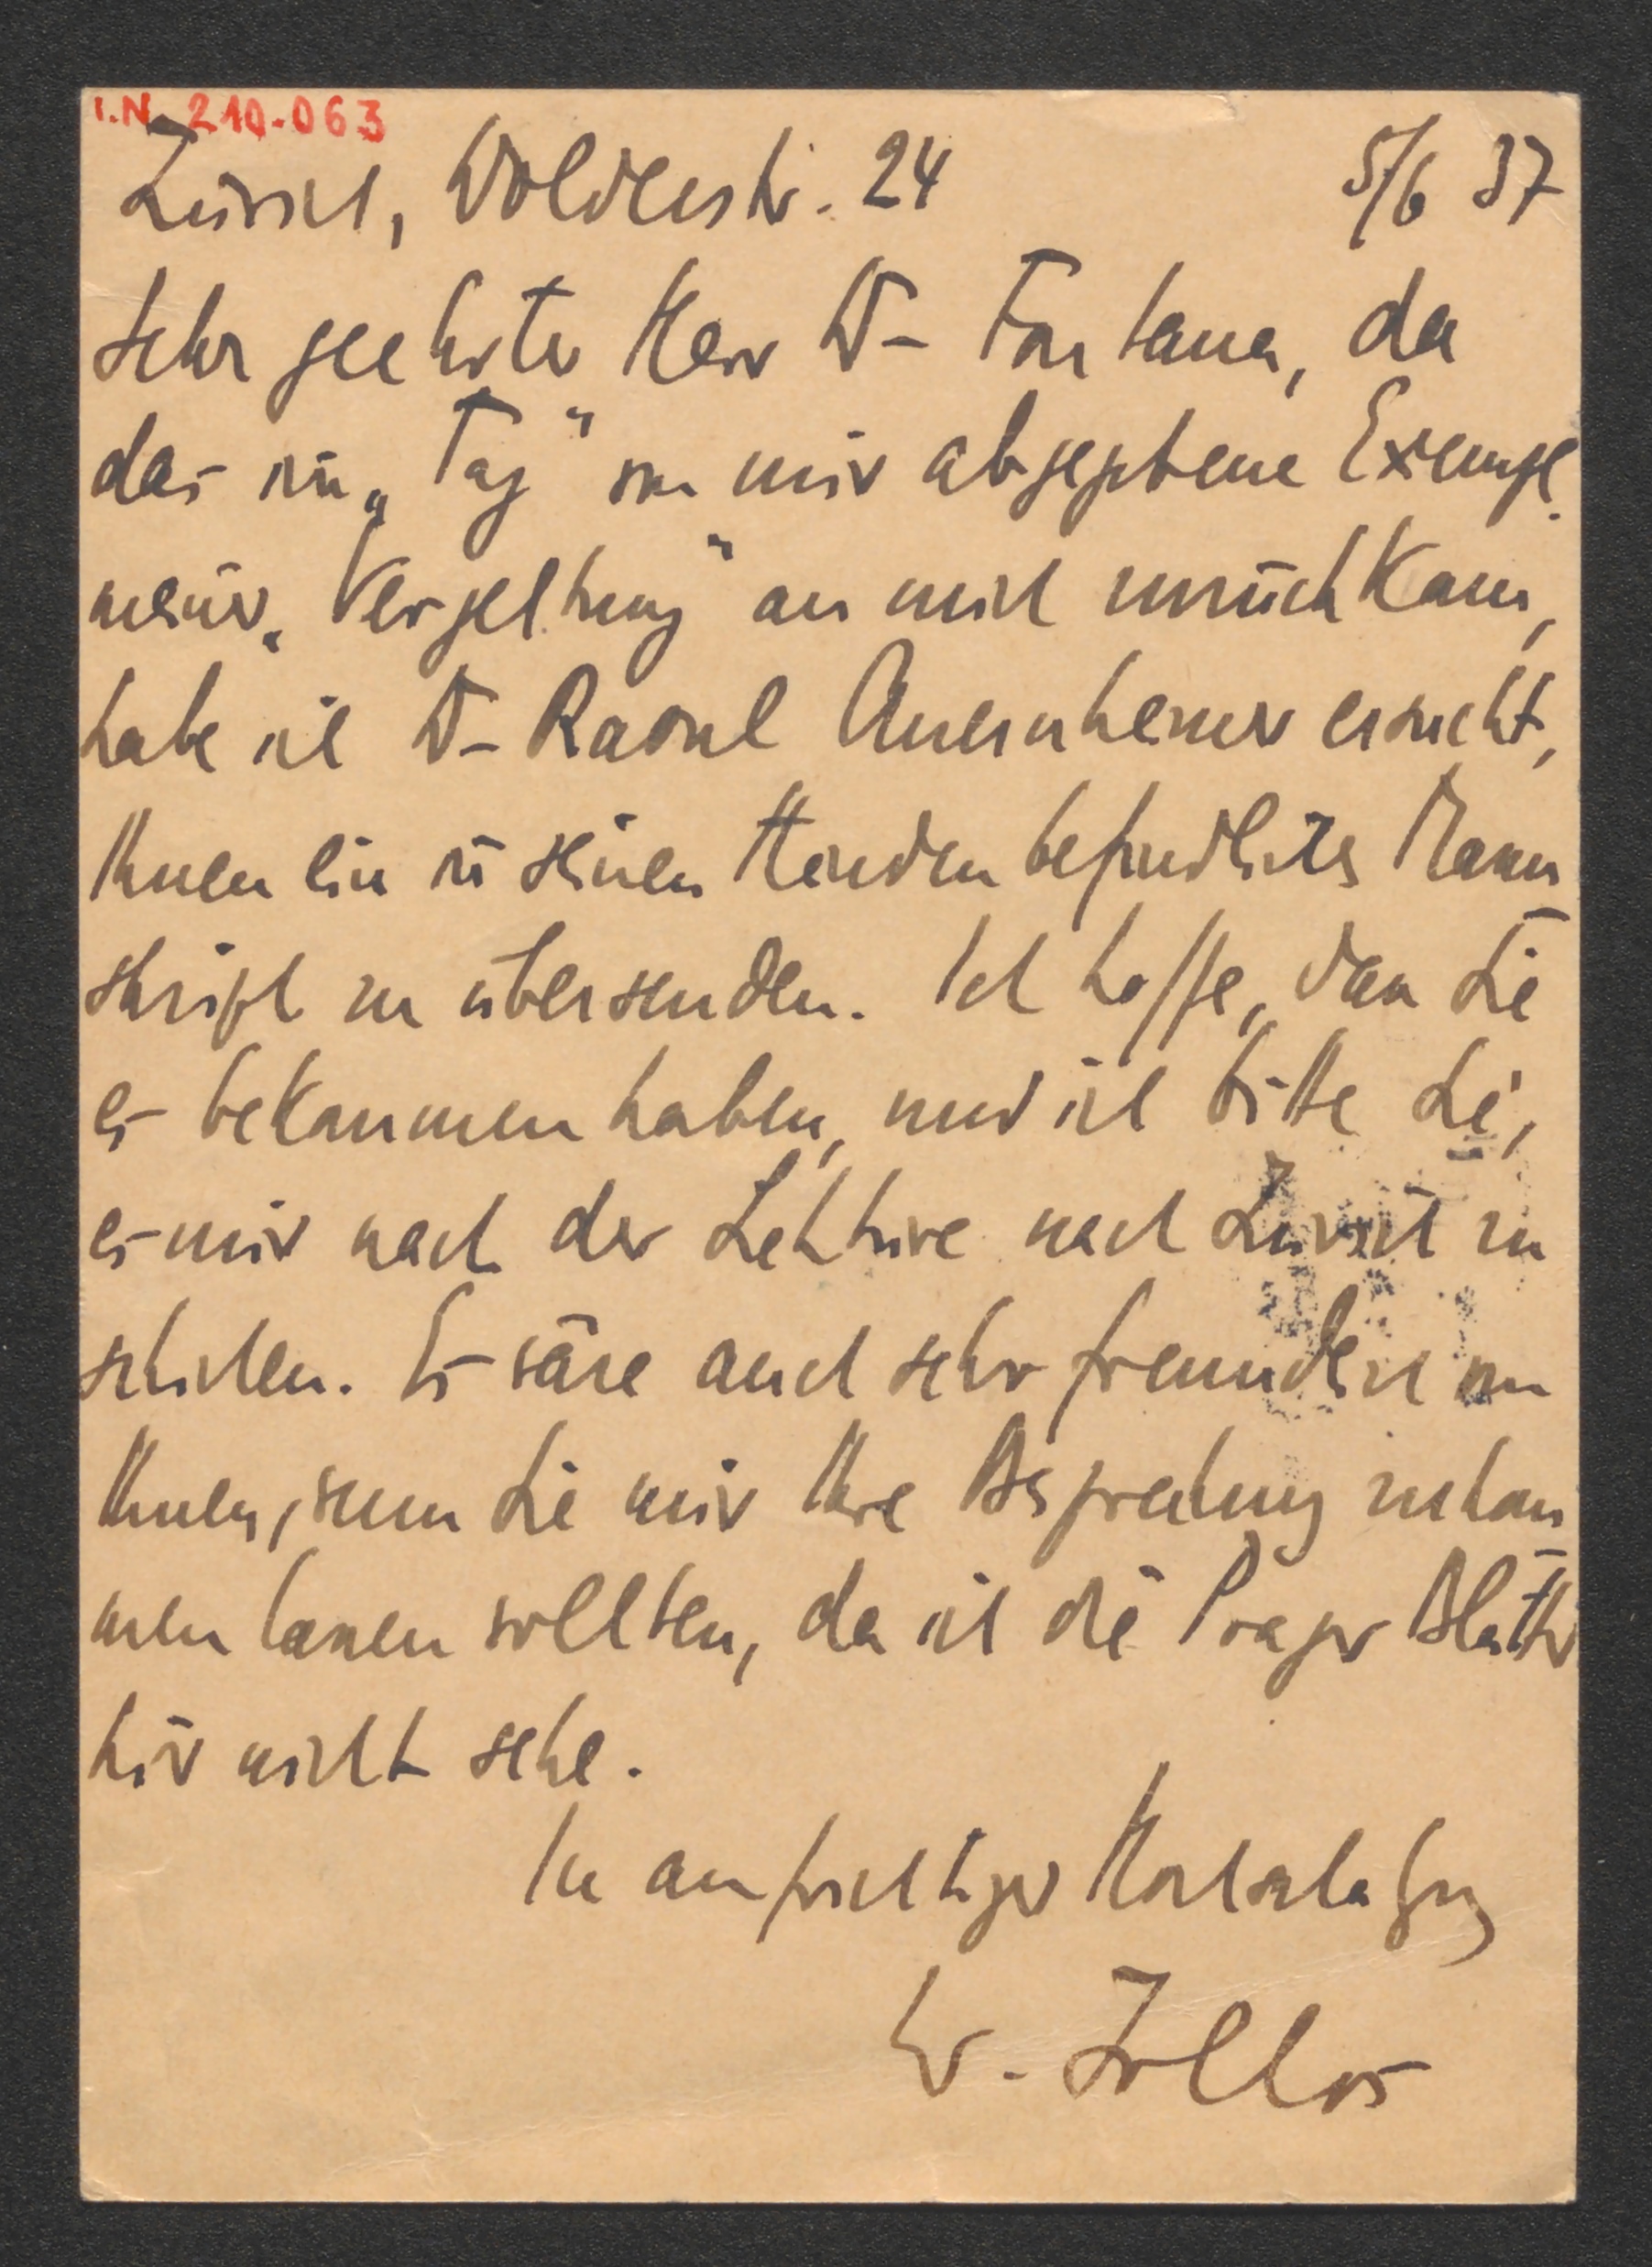 I.N. 210.063
Zürich, Dolderstr. 24 5/6 37
Sehr geehrter Herr Dr Fontana, da
das im „Tag" von mir abgegebene Exempl.
meiner „Vergeltung" an mich zurückkam,
habe ich Dr Raoul Auernheimer ersucht,
Ihnen ein in seinen Händen befindliches Manu
skript zu übersenden. Ich hoffe, dass Sie
es bekommen haben, und ich bitte Sie,
es mir nach der Lektüre nach Zürich zu
schicken. Es wäre auch sehr freundlich von
Ihnen, wenn Sie mir Ihre Besprechung zukom
men lassen wollten, da ich die Prager Blätter
hier nicht sehe.
In aufrichtiger Hochschätzung